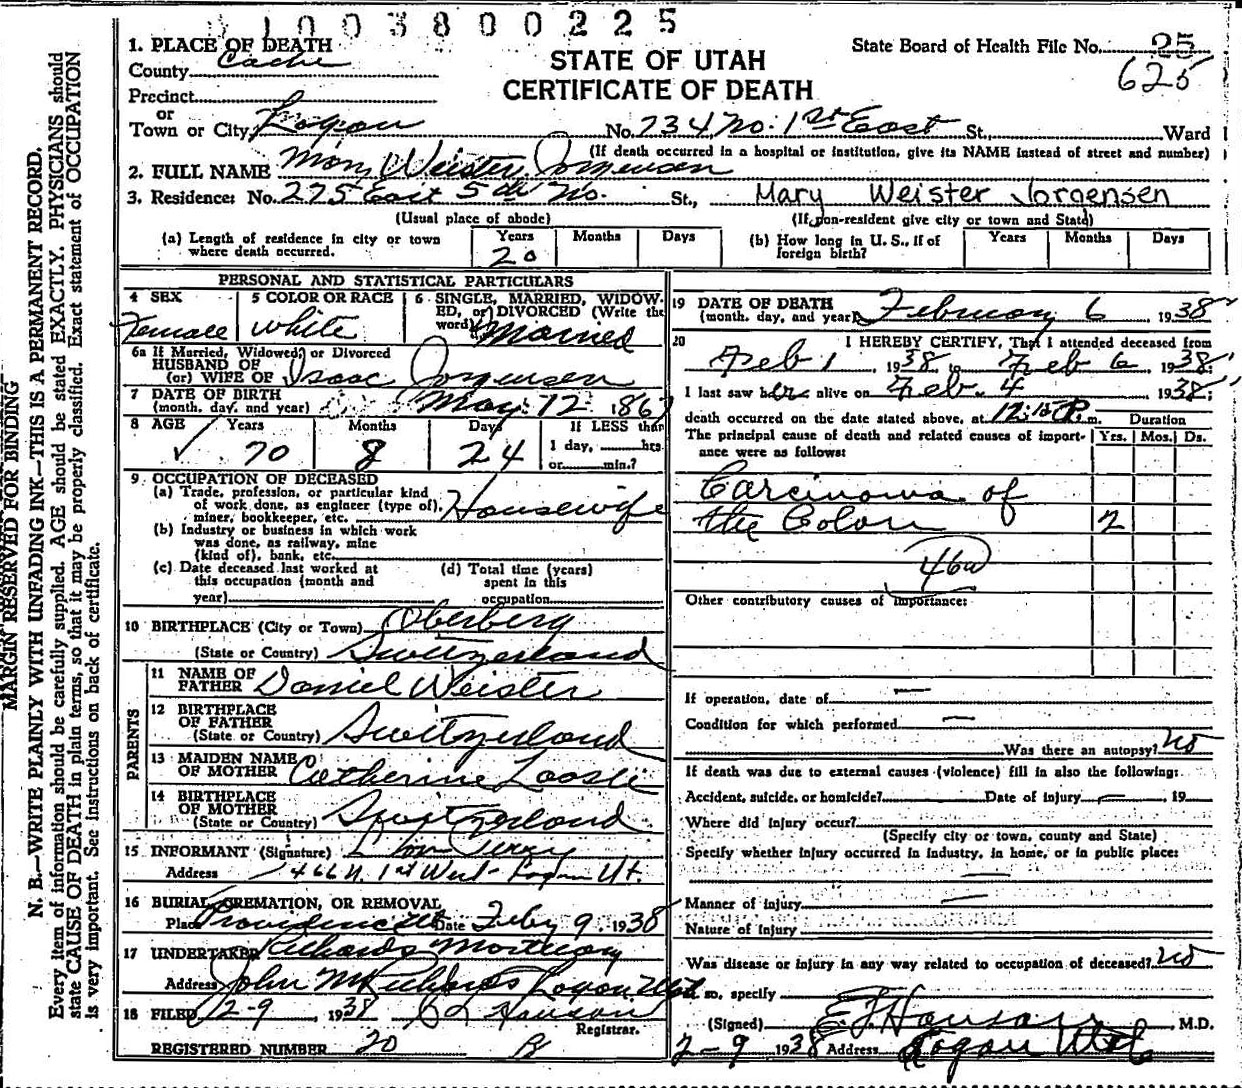 1003800225
1. PLACE OF DEATH
County Cache
Precinct
or
Town or City Logan No. 734 No. 1st East St. Ward
STATE OF UTAH
CERTIFICATE OF DEATH
State Board of Health File No. 25
625
(If death occurred in a hospital or institution, give its NAME instead of street and number)
2. FULL NAME Mary Weister Jorgensen
3. Residence: No. 275 East 5th No. St., Mary Weister Jorgensen
(Usual place of abode) (If non-resident give city or town and State)
(a) Length of residence in city or town where death occurred. Years 20 Months Days
(b) How long in U. S., if of foreign birth? Years Months Days
PERSONAL AND STATISTICAL PARTICULARS
4 SEX Female
5 COLOR OR RACE white
6 SINGLE, MARRIED, WIDOWED, or DIVORCED (Write the word) Married
6a If Married, Widowed, or Divorced
HUSBAND OF
(or) WIFE OF Isaac Jorgensen
7 DATE OF BIRTH
(month, day, and year) May 12 1867
8 AGE Years 70 Months 8 Days 24 If LESS than 1 day, hrs. or min.?
9. OCCUPATION OF DECEASED
(a) Trade, profession, or particular kind of work done, as engineer (type of), miner, bookkeeper, etc. Housewife
(b) Industry or business in which work was done, as railway, mine (kind of), bank, etc.
(c) Date deceased last worked at this occupation (month and year)
(d) Total time (years) spent in this occupation
10 BIRTHPLACE (City or Town) Oberberg
(State or Country) Switzerland
PARENTS
11 NAME OF FATHER Daniel Weister
12 BIRTHPLACE OF FATHER
(State or Country) Switzerland
13 MAIDEN NAME OF MOTHER Catherine Loosli
14 BIRTHPLACE OF MOTHER
(State or Country) Switzerland
15 INFORMANT (Signature)
Address 466 N. 1st West Logan Ut.
16 BURIAL, CREMATION, OR REMOVAL
Place Providence Ut Date Feby 9, 1938
17 UNDERTAKER Richards Mortuary
Address John M Richards Logan Utah
18 FILED 2-9, 1938 C L Hanson
Registrar.
REGISTERED NUMBER 20
19 DATE OF DEATH
(month, day, and year) February 6, 1938
20 I HEREBY CERTIFY, That I attended deceased from
Feb 1, 1938, to Feb 6, 1938;
I last saw her alive on Feb. 4 1938;
death occurred on the date stated above, at 12:15 P. m. Duration
The principal cause of death and related causes of importance were as follows: Yrs. Mos. Ds.
Carcinoma of
the Colon 2
46a
Other contributory causes of importance:
If operation, date of —
Condition for which performed —
Was there an autopsy? no
If death was due to external causes (violence) fill in also the following:
Accident, suicide, or homicide? Date of injury — 19
Where did injury occur?
(Specify city or town, county and State)
Specify whether injury occurred in industry, in home, or in public place:
Manner of injury
Nature of injury
Was disease or injury in any way related to occupation of deceased? no
If so, specify
(Signed) E J Hanson, M.D.
2-9, 1938 Address Logan Utah
MARGIN RESERVED FOR BINDING
N. B.—WRITE PLAINLY WITH UNFADING INK—THIS IS A PERMANENT RECORD.
Every item of information should be carefully supplied. AGE should be stated EXACTLY. PHYSICIANS should
state CAUSE OF DEATH in plain terms, so that it may be properly classified. Exact statement of OCCUPATION
is very important. See instructions on back of certificate.